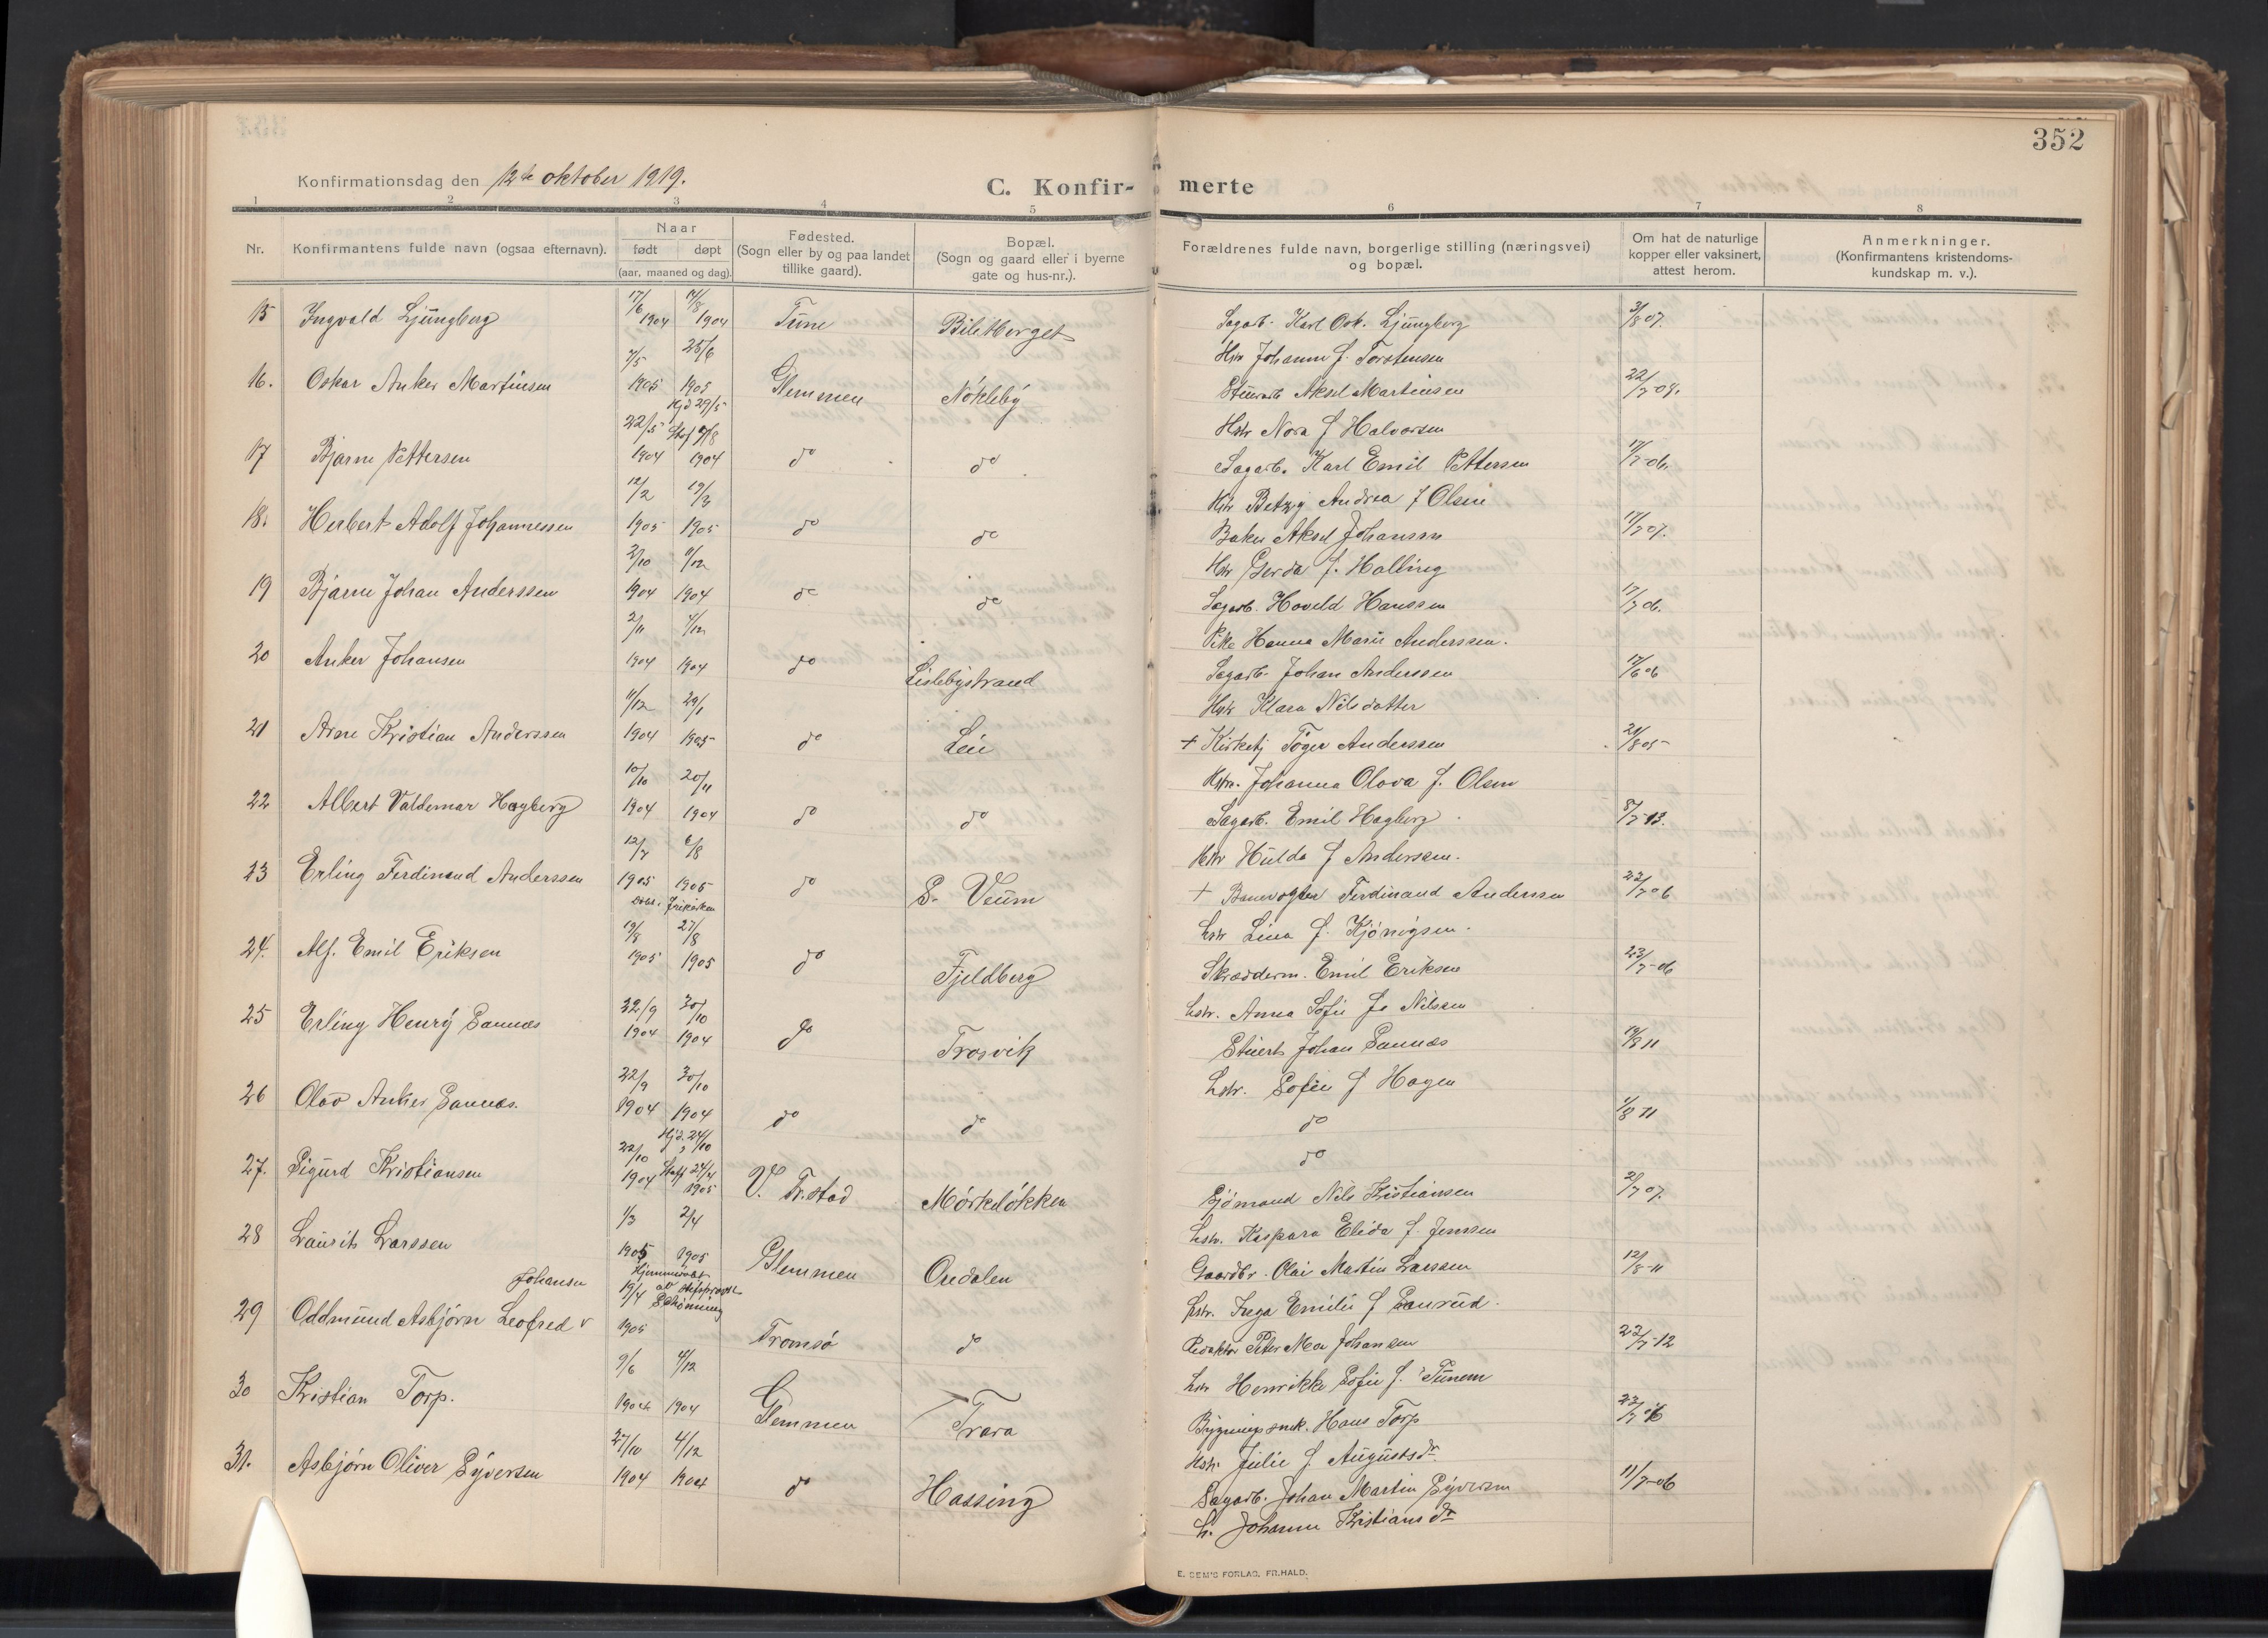 352
Konfirmationsdag den 12te oktober 1919.
C. Konfir- merte
1 2 3 4 5 6 7 8
Nr.
Konfirmantens fulde navn (ogsaa efternavn).
Naar
født døpt
(aar, maaned og dag).
Fødested.
(Sogn eller by og paa landet
tillike gaard).
Bopæl.
(Sogn og gaard eller i byerne
gate og hus-nr.).
Forældrenes fulde navn, borgerlige stilling (næringsvei)
og bopæl.
Om hat de naturlige
kopper eller vaksinert,
attest herom.
Anmerkninger.
(Konfirmantens kristendoms-
kundskap m. v.).
15 Ingvald Ljungberg 17/6 1904 14/8 1904 Tune Biletberget Sagarb. Karl Osk. Ljungberg 3/8 07.
Hstr Johanne f. Torstensen
16. Oskar Anker Martinsen 7/5 1905 25/6 1905 Glemmen Nökleby Stuerarb Aksel Martinsen 22/7 09.
Hstr Nora f Halvorsen
17 Bjarne Pettersen 22/5 1904 Hjd 29/5 Stf 7/8 1904 do do Sagarb. Karl Emil Pettersen 17/7-06.
Hstr Betzy Andrea f Olsen
18. Herbert Adolf Johannessen 12/2 1905 19/3 1905 do do Baker Aksel Johansen 17/7 07.
Hstr Gerda f. Halling
19 Bjarne Johan Anderssen 2/10 1904 11/12 1904 do do Sagarb. Hoveld Hanssen 17/7 06.
Pike Hanna Marie Anderssen.
20 Anker Johansen 2/11 1904 4/12 1904 do Lislebystrand Sagarb. Johan Anderssen 17/6 06
Hstr Klara Nilsdatter
21 Arne Kristian Anderssen 11/12 1904 29/1 1905 do Leie + Kirketj Töger Anderssen 21/8 05-
Hstr. Johanna Olava f. Olsen
22 Albert Valdemar Hagberg 10/10 1904 20/11 1904 do do Sagarb. Emil Hagberg 8/7-13.
Hstr Hulda f Anderssen.
23 Erling Ferdinand Anderssen 12/7 1905 6/8 1905 do S. Veum + Banevogter Ferdinand Anderssen 22/7 06
frikirken
hstr Lina f. Kjönigsen.
24. Alf. Emil Eriksen 19/8 1905 27/8 1905 do Fjeldberg Skrædderm. Emil Eriksen 23/7-06
hstr. Anna Sofie f. Nilssen
25 Erling Henry Sannæs 22/9 1904 30/10 1904 do Trosvik Stuert Johan Sannæs 19/8 11
hstr. Sofie f Hagen
26 Olav Anker Sannæs. 22/9 1904 30/10 1904 do do do 1/8 11
do
27. Sigurd Kristiansen 22/10 1904 Hjd. 24/10 Stadf 24/4 1905 V. Fr.stad Mörkelökken Sjömand Nils Kristiansen 2/7 07.
hstr. Kaspara Elida f. Jenssen
28 Laurits Larssen 1/3 1905 2/4 1905 Glemmen Ondalen Gaardbr. Olai Martin Larssen 12/8-11
hstr. Inga Emilie f Sanrud.
Johansen
29 Oddmund Asbjørn Leofred v 19/4 1905 Hjemmedøbt av stiftsprovst Schönning Tromsö do Redaktör Peter Moe Johansen 22/7-12
hstr Henrikke Sofie f. Tunem
30 Kristian Torp. 9/6 1904 4/12 1904 Glemmen Trara Bygningssnek. Hans Torp 23/7 06
Hstr. Julie f. Augustsdr
31. Asbjørn Oliver Syversen 27/10 1904 4/12 1904 do Hassing Sagarb. Johan Martin Syversen 11/7-06
h. Johanne Kristiansdr
E. SEM'S FORLAG, FR.HALD.